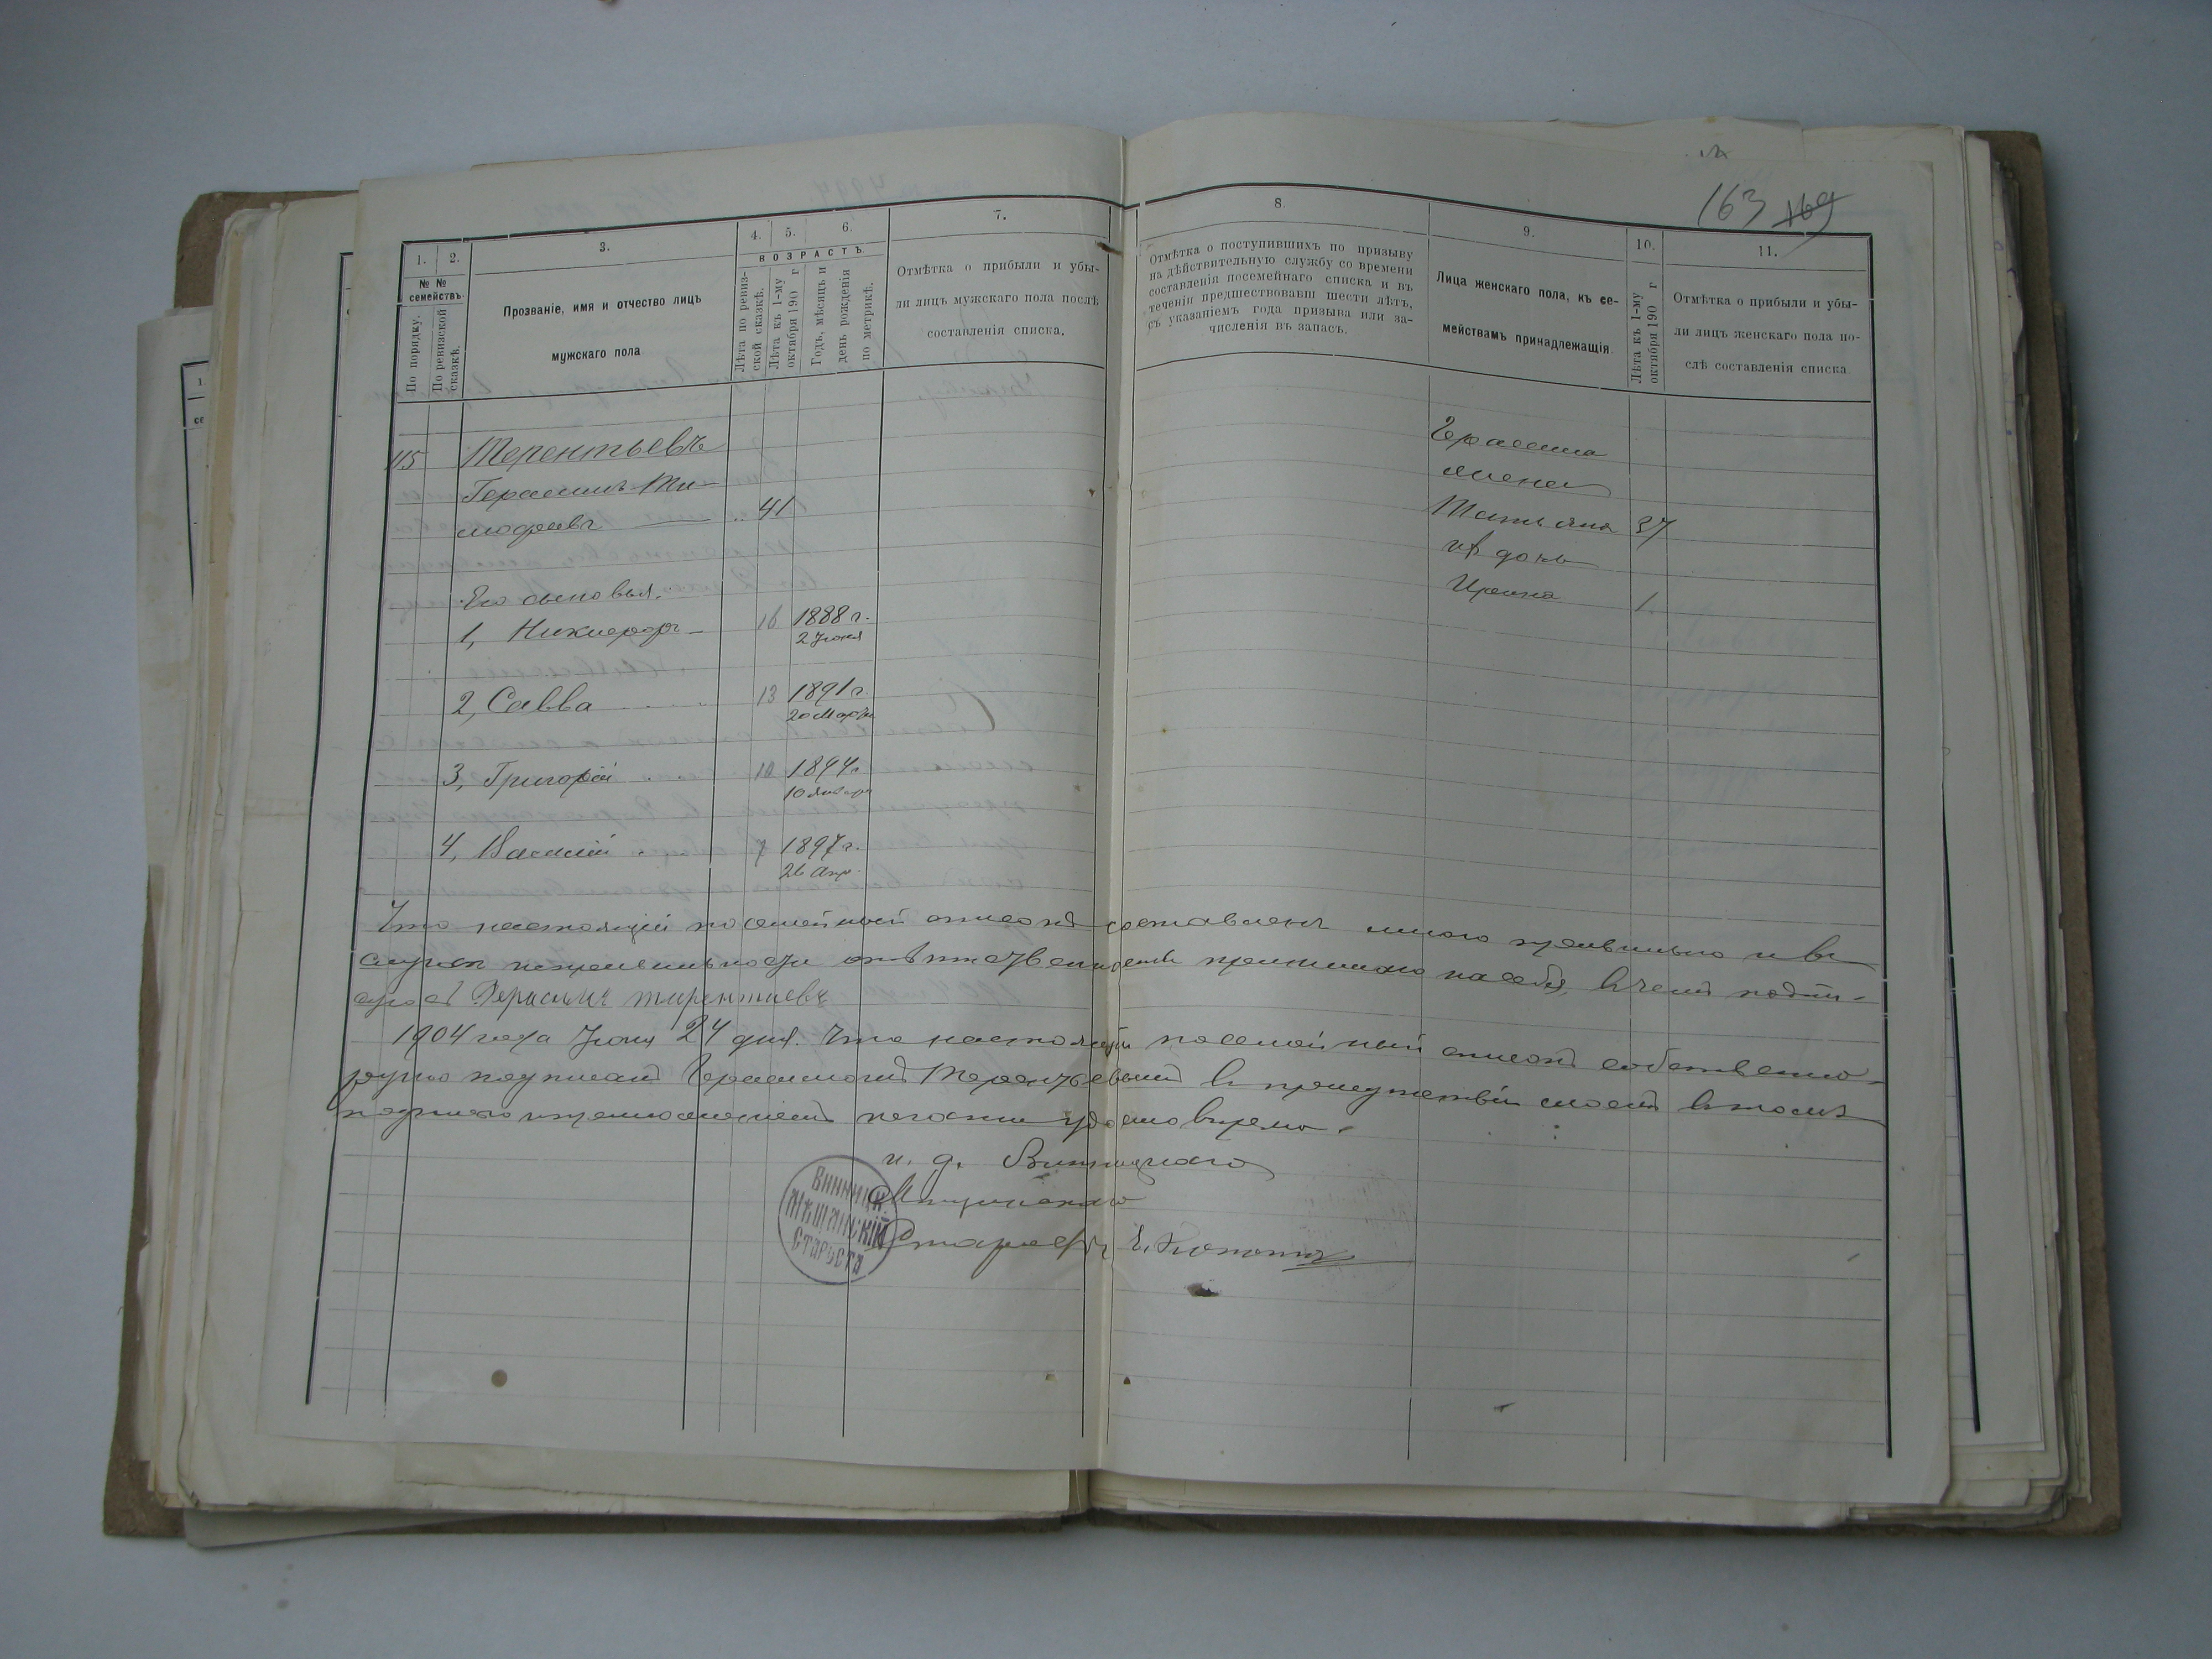 163 169
1.
2.
3.
4.
5.
6.
7.
8.
9.
10.
11.
№ №
семействъ.
По порядку.
По ревизской
сказкѣ.
Прозваніе, имя и отчество лицъ
мужскаго пола
ВОЗРАСТЪ.
Лѣта по ревиз-
ской сказкѣ.
Лѣта къ 1-му
октября 190 г
Годъ, мѣсяцъ и
день рожденія
по метрикѣ.
Отмѣтка о прибыли и убы-
ли лицъ мужскаго пола послѣ
составленія списка.
Отмѣтка о поступившихъ по призыву
на дѣйствительную службу со времени
составленія посемейнаго списка и въ
теченіи предшествовавш шести лѣтъ,
съ указаніемъ года призыва или за-
численія въ запасъ.
Лица женскаго пола, къ се-
мействамъ принадлежащія
Лѣта къ 1-му
октября 190 г
Отмѣтка о прибыли и убы-
ли лицъ женскаго пола по-
слѣ составленія списка
115 Терентьевъ
Герасимъ Ти-
мофеевъ 41
Его сыновья.
1, Никифоръ 16 1888 г.
2 Іюня
2, Савва 13 1891 г.
20 Марта
3, Григорій 10 1894 г.
10 Января
4, Василій 7 1897 г.
26 Апр.
Герасима
жена
Татьяна 37
ихъ дочь
Ирина 1
Что настоящій посемейный списокъ составленъ мною правильно и въ
случаѣ неправильности отвѣтственность принимаю на себя, въ чемъ подпи-
суюсь Герасимъ тирентиевъ
1904 года Іюня 24 дня. Что настоящій посемейный списокъ собственно-
ручно подписанъ Герасимомъ Терентьевымъ въ присутствіи моемъ въ томъ
подписью и приложеніемъ печати удостовѣряю.
и. д. Винницкаго
Мѣщанскаго
Старосты
ВИННИЦК.
МѢЩАНСКІЙ
СТАРОСТА